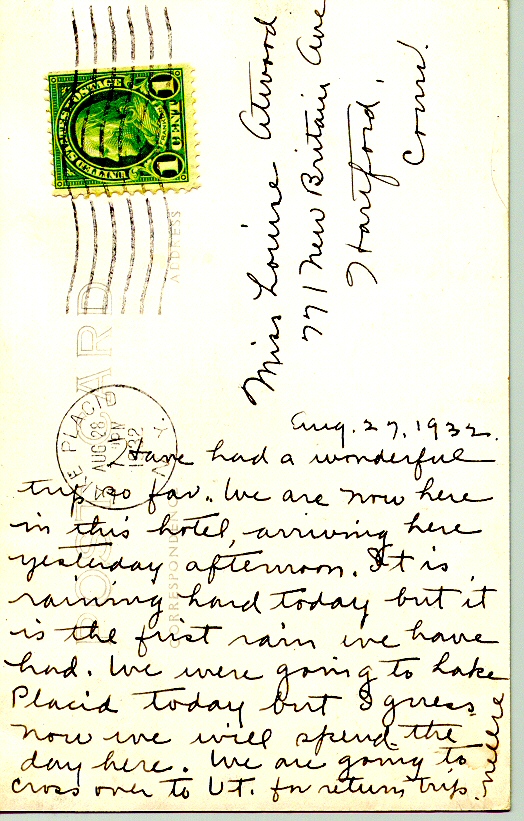 UNITED STATES POSTAGE
1 CENT 1
LAKE PLACID
AUG 28
PM
1932
N.Y.
POST CARD
ADDRESS
CORRESPONDENCE
Miss Louise Atwood
771 New Britain Ave
Hartford,
Conn.
Aug. 27, 1932.
Have had a wonderful
trip so far. We are now here
in this hotel, arriving here
yesterday afternoon. It is
raining hard today but it
is the first rain we have
had. We were going to Lake
Placid today but I guess
now we will spend the
day here. We are going to
cross over to Vt. for return trip.
Nellie